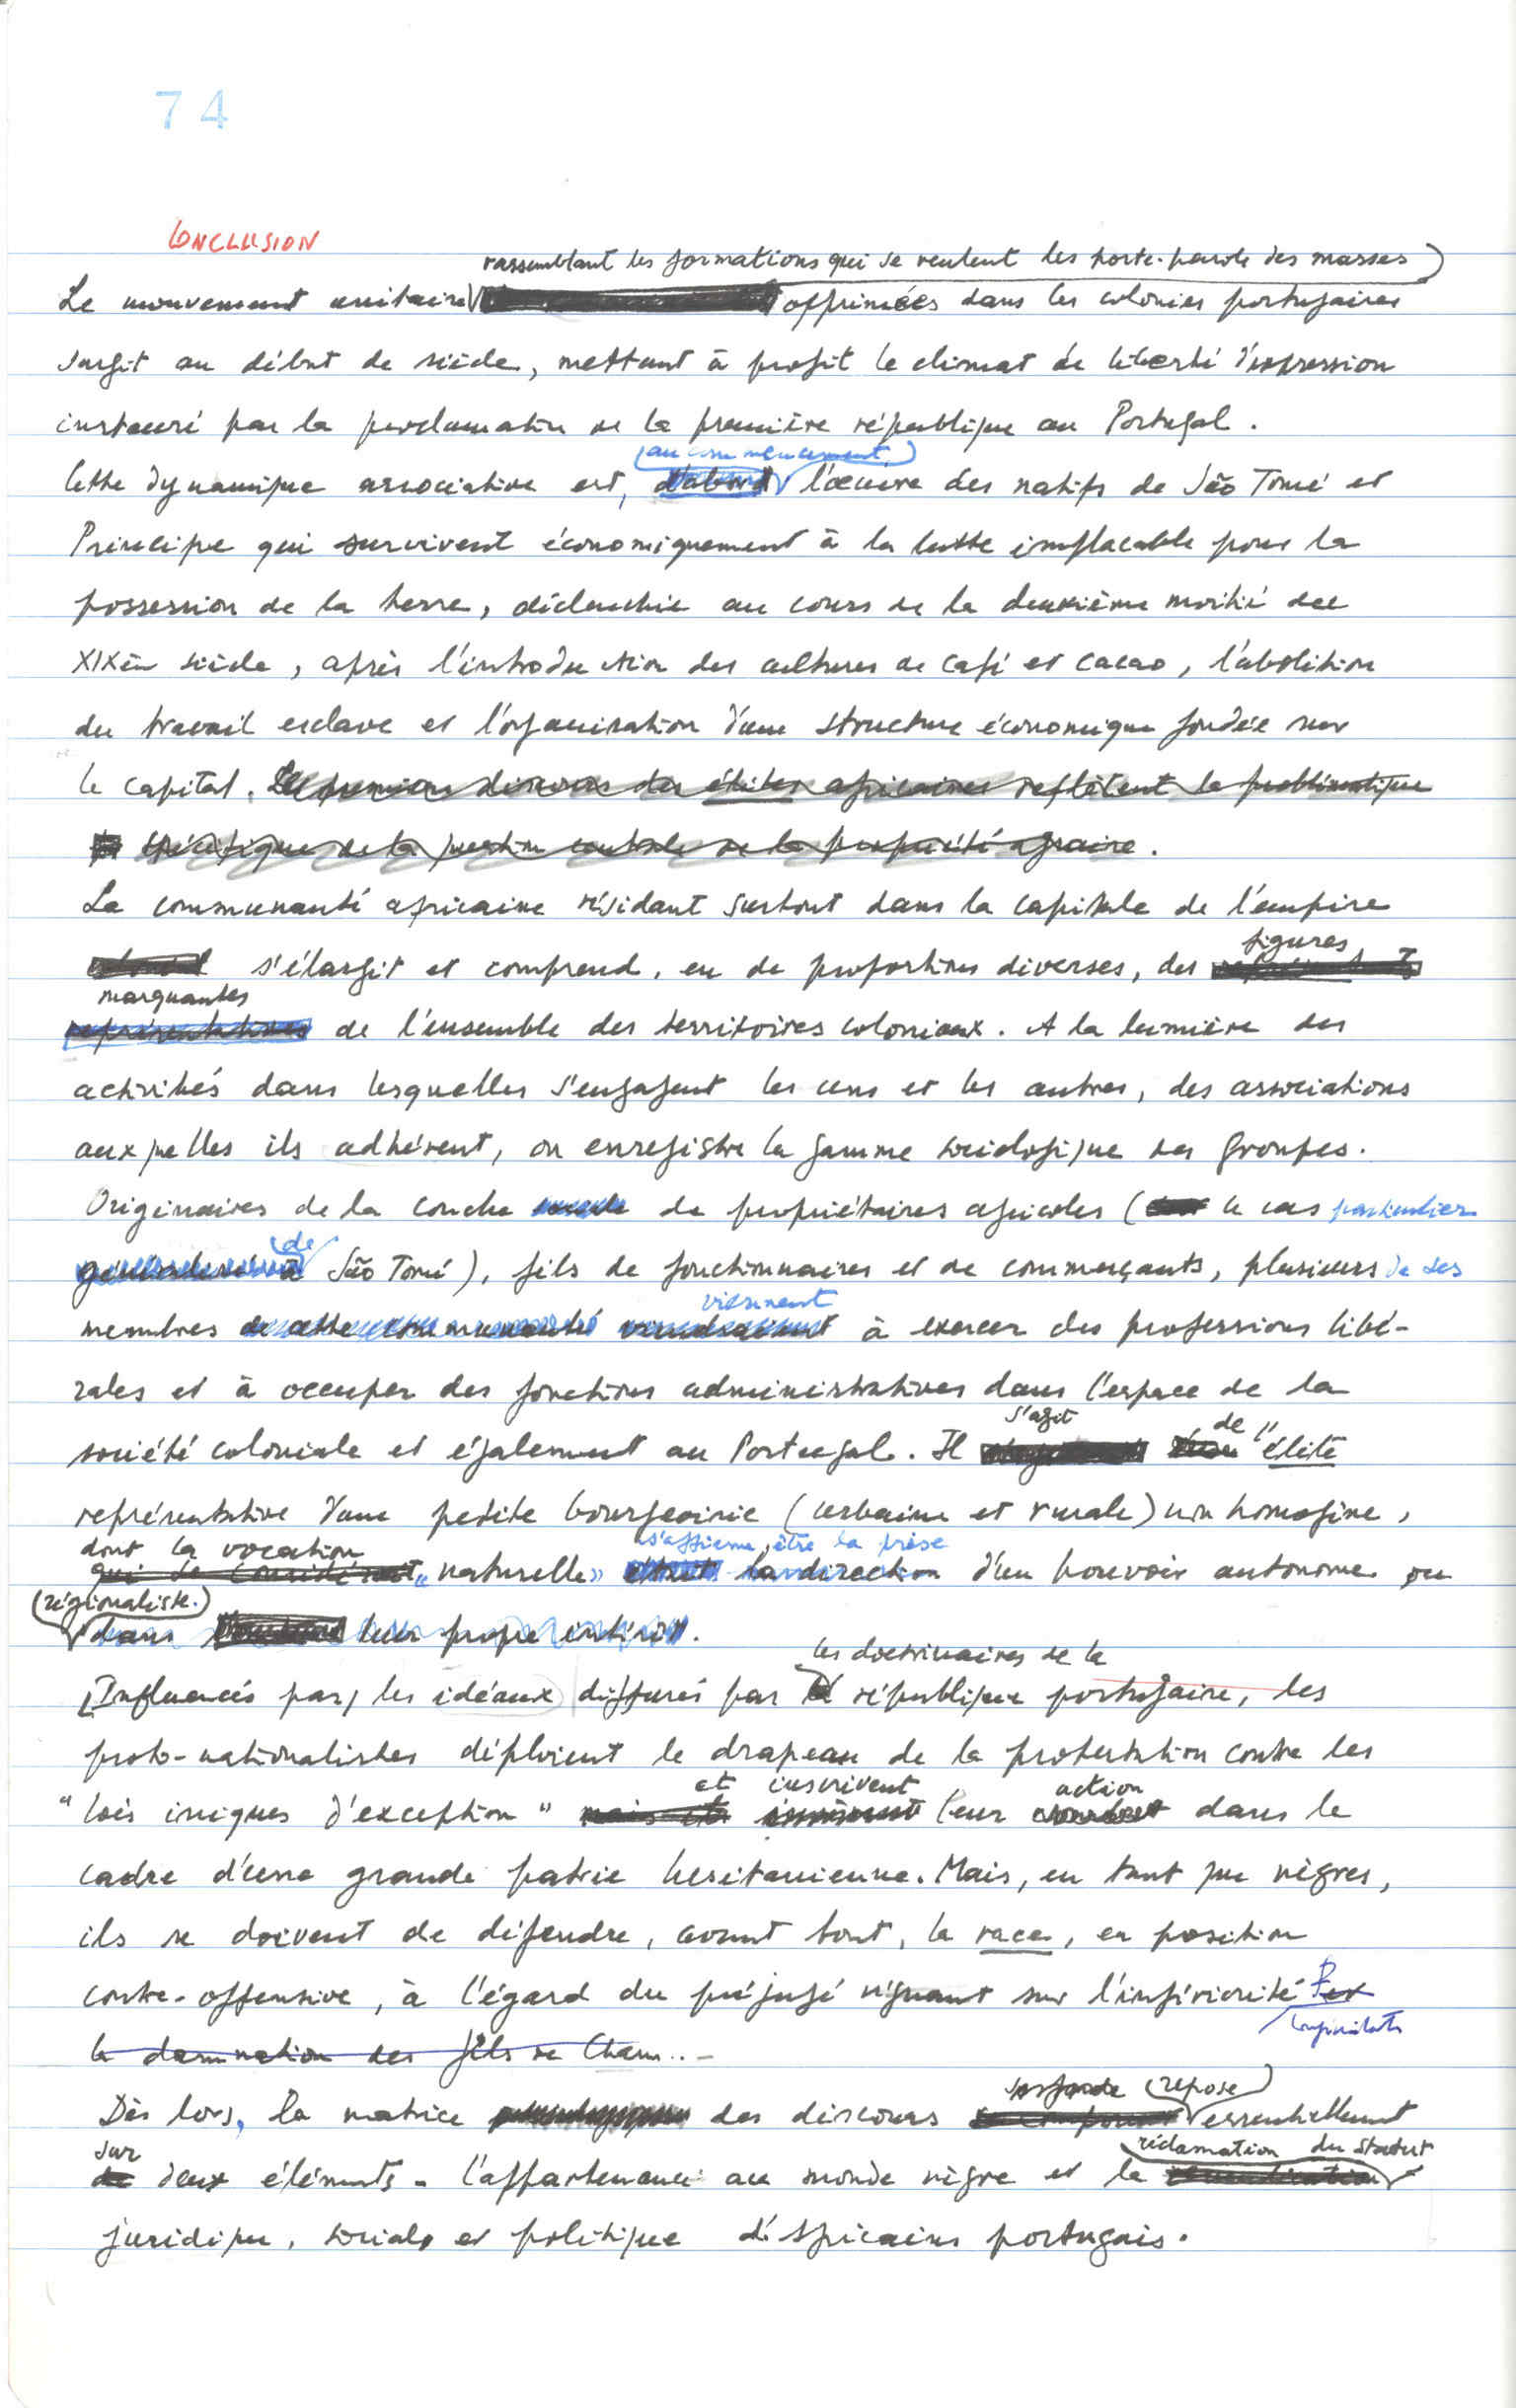 74
CONCLUSION
rassemblant les formations qui se veulent les porte-parole des masses
Le mouvement unitaire opprimées dans les colonies portugaises
surgit au début de siècle, mettant à profit le climat de liberté d'expression
instauré par la proclamation de la première république au Portugal.
au commencement,
Cette dynamique associative est, d'abord l'œuvre des natifs de São Tomé et
Principe qui survivent économiquement à la lutte implacable pour la
possession de la terre, déclenchée au cours de la deuxième moitié du
XIXèm siècle, après l'introduction des cultures de café et cacao, l'abolition
du travail esclave et l'organisation d'une structure économique fondée sur
le capital. Les premiers discours des élites africaines reflètent la problématique
spécifique de la question centrale de la propriété agraire.
La communauté africaine résidant surtout dans la capitale de l'empire
figures
colonial s'élargit et comprend, en de proportions diverses, des
marquantes
représentatives de l'ensemble des territoires coloniaux. A la lumière des
activités dans lesquelles s'engagent les uns et les autres, des associations
auxquelles ils adhérent, on enregistre la gamme sociologique des groupes.
Originaires de la couche sociale de propriétaires agricoles (le cas particulier
de
généralisé à São Tomé), fils de fonctionnaires et de commerçants, plusieurs de ses
viennent
membres de cette communauté viendraient à exercer des professions libé-
rales et à occuper des fonctions administratives dans l'espace de la
s'agit de
société coloniale et également au Portugal. Il d'une "élite
représentative d'une petite bourgeoisie (urbaine et rurale) non homogène,
dont la vocation s'affirme être la prise
qui se considérait "naturelle" était la direction d'un pouvoir autonome ou
(régionaliste.)
dans leur propre intérêt.
les doctrinaires de la
[Influencés par, les idéaux diffusés par la république portugaise, les
proto-nationalistes déploient le drapeau de la protestation contre les
et inscrivent action
"lois iniques d'exception" mais ils leur dans le
cadre d'une grande patrie lusitanienne. Mais, en tant que nègres,
ils se doivent de défendre, avant tout, la race, en position
contre-offensive, à l'égard du préjugé régnant sur l'infériorité
la damnation des fils de Cham...
se fonde (repose)
Dès lors, la matrice des discours se compose essentiellement
sur réclamation du statut
de deux éléments - l'appartenance au monde nègre et la revendication
juridique, sociale et politique d'Africains portugais.